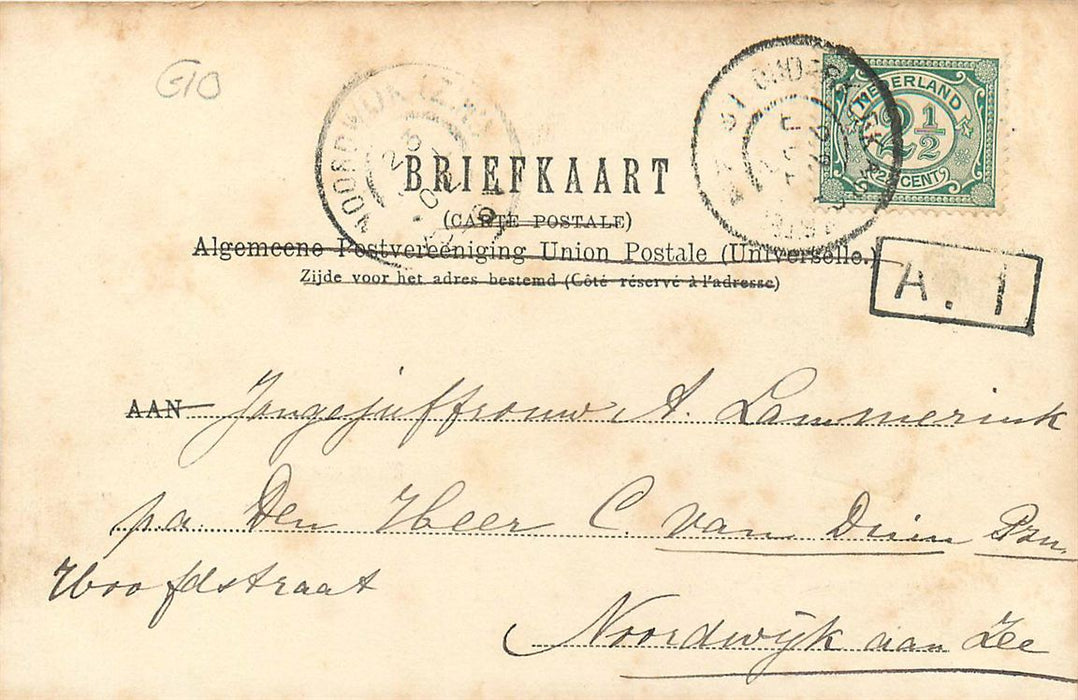 G10
NOORDWIJK (Z.H)
23
NEDERLAND
2 1/2
CENT
BRIEFKAART
(CARTE POSTALE)
Algemeene Postvereeniging Union Postale (Universelle.)
Zijde voor het adres bestemd (Côté réservé à l'adresse)
A. 1
AAN Jongejuffrouw A. Lammerink
pa. Den Heer C. van Duin Pzn.
Hoofdstraat
Noordwijk aan Zee